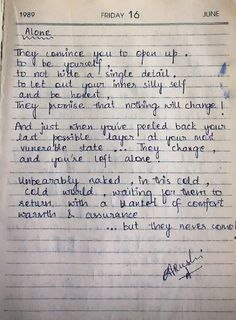 1989 FRIDAY 16 JUNE
Alone
They convince you to open up.
to be yourself,
to not hide a single detail,
to let out your inner silly self
and be honest.
They promise that nothing will change!
And just when you've peeled back your
last possible layer at your most
vunerable state ... They change,
and you're left alone.
Unbearably naked, in this cold,
cold world, waiting for them to
return with a blanket of comfort
warmth & assurance
... but they never come